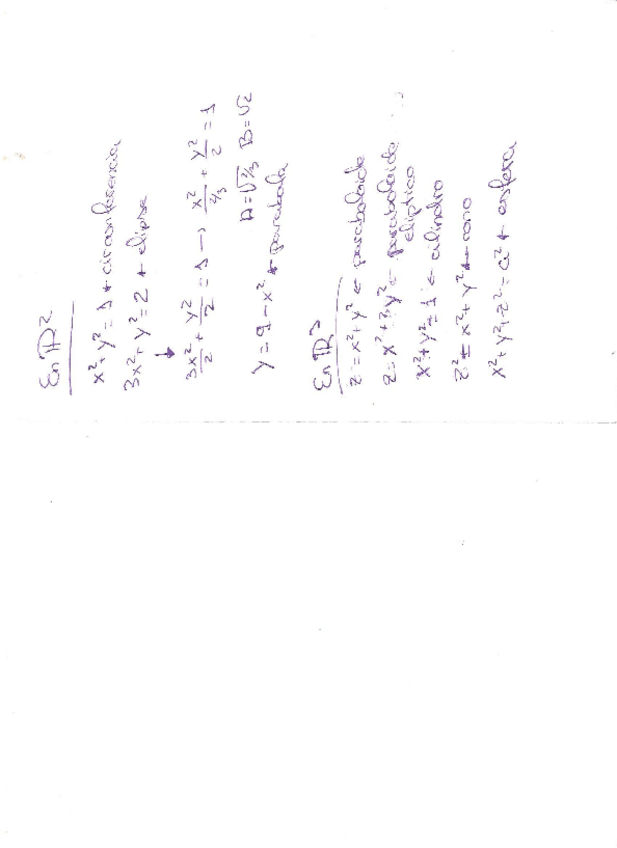 En ℝ²
x² + y² = 1 ← circunferencia
3x² + y² = 2 ← elipse
↓
3x²/2 + y²/2 = 1 → x²/(2/3) + y²/2 = 1
A = √2/3 B = √2
y = 9 - x² ← parabola
En ℝ³
z = x² + y² ← paraboloide
z = x² + 3y² ← paraboloide
eliptico
x² + y² = 1 ← cilindro
z² = x² + y² ← cono
x² + y² + z² = a² ← esfera